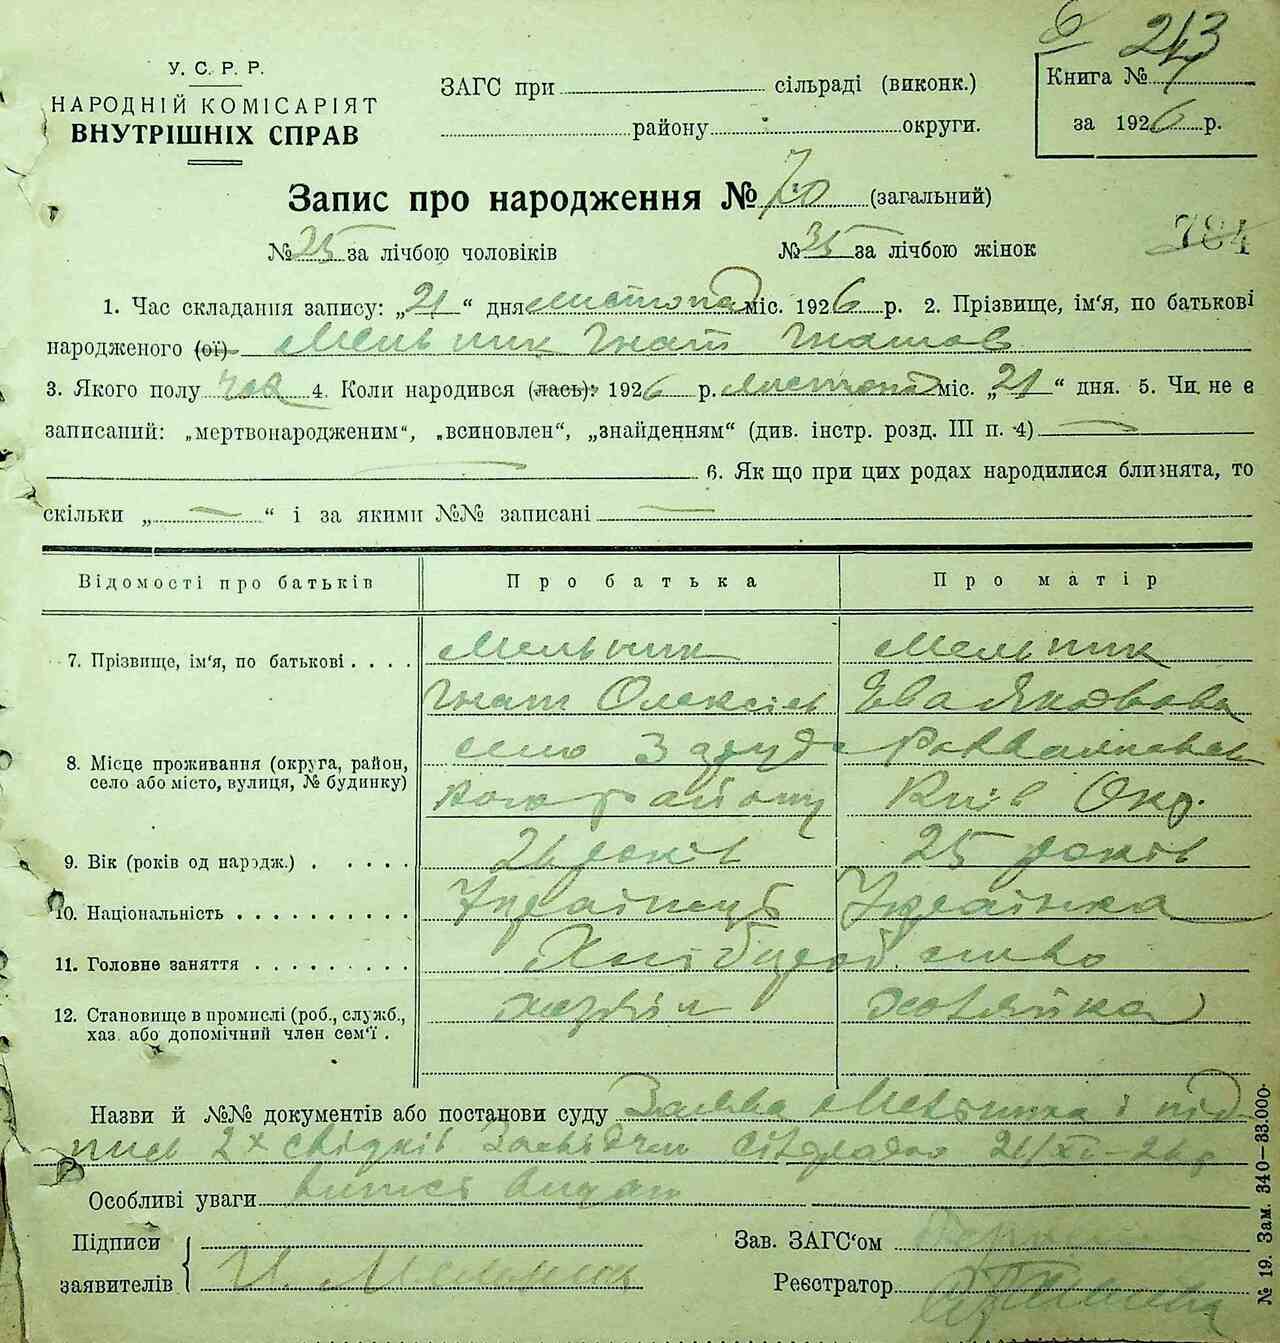 6 243
У. С. Р. Р.
НАРОДНІЙ КОМІСАРІЯТ
ВНУТРІШНІХ СПРАВ
ЗАГС при сільраді (виконк.)
району округи.
Книга №
за 1926 р.
Запис про народження № 70 (загальний)
№ 25 за лічбою чоловіків № 35 за лічбою жінок 784
1. Час складання запису: „21“ дня листопад міс. 1926 р. 2. Прізвище, ім'я, по батькові
народженого (ої) Мельник Гнат Гнатов
3. Якого полу чол 4. Коли народився (лась): 1926 р. листопад міс. „21“ дня. 5. Чи не є
записаний: „мертвонародженим“, „всиновлен“, „знайденням“ (див. інстр. розд. III п. 4)
6. Як що при цих родах народилися близнята, то
скільки „ “ і за якими №№ записані
Відомості про батьків Про батька Про матір
7. Прізвище, ім'я, по батькові . . . . Мельник Мельник
Гнат Олексіев Єва Яковова
8. Місце проживання (округа, район, село
село або місто, вулиця, № будинку) району Київ Окр.
9. Вік (років од народж.) . . . . . 26 років 25 років
10. Національність . . . . . . . . . . Українець Українка
11. Головне заняття . . . . . . . . . Хліборобство
12. Становище в промислі (роб., служб., хазяїн хозяйка
хаз. або допомічний член сем'ї .
Назви й №№ документів або постанови суду Заява Мельника і під
писи 2х свідків 21/XI-26р
Особливі уваги
Підписи
заявителів Мельник
Зав. ЗАГС'ом
Реєстратор
№ 19. Зам. 340—33.000.